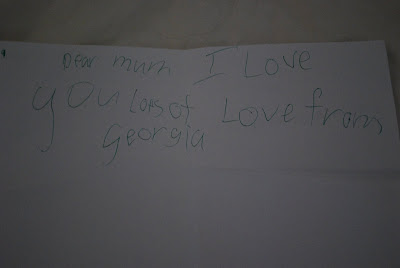 Dear mum I Love
you Lots of Love from
Georgia